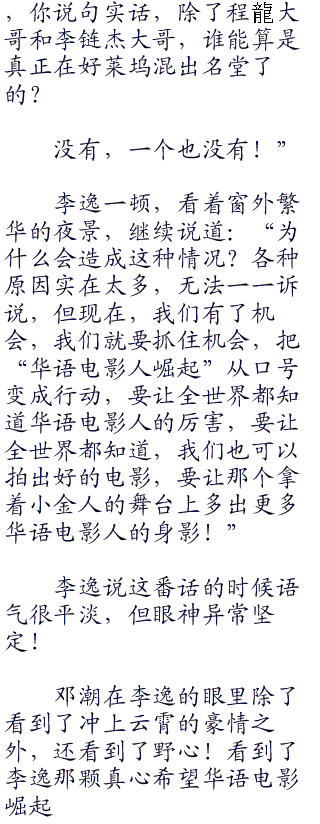 ，你说句实话，除了程龍大
哥和李链杰大哥，谁能算是
真正在好莱坞混出名堂了
的？
没有，一个也没有！”
李逸一顿，看着窗外繁
华的夜景，继续说道：“为
什么会造成这种情况？各种
原因实在太多，无法一一诉
说，但现在，我们有了机
会，我们就要抓住机会，把
“华语电影人崛起”从口号
变成行动，要让全世界都知
道华语电影人的厉害，要让
全世界都知道，我们也可以
拍出好的电影，要让那个拿
着小金人的舞台上多出更多
华语电影人的身影！”
李逸说这番话的时候语
气很平淡，但眼神异常坚
定！
邓潮在李逸的眼里除了
看到了冲上云霄的豪情之
外，还看到了野心！看到了
李逸那颗真心希望华语电影
崛起